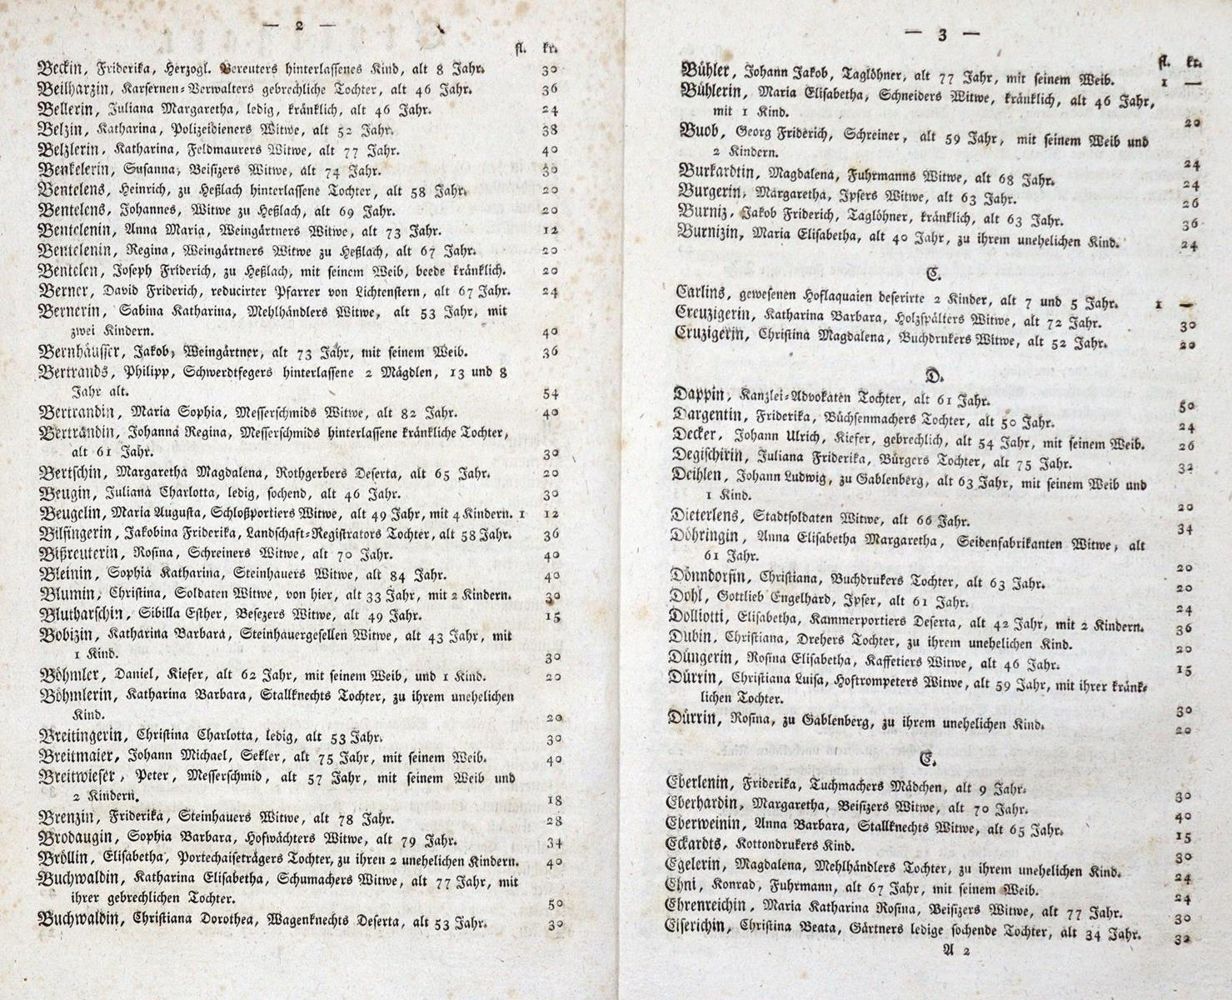 — 2 —
fl. kr.
Beckin, Friderika, Herzogl. Bereuters hinterlassenes Kind, alt 8 Jahr. 30
Beilharzin, Karsernen-Verwalters gebrechliche Tochter, alt 46 Jahr. 36
Bellerin, Juliana Margaretha, ledig, kränklich, alt 46 Jahr. 24
Belzin, Katharina, Polizeidieners Witwe, alt 52 Jahr. 38
Belzlerin, Katharina, Feldmaurers Witwe, alt 77 Jahr. 40
Benkelerin, Susanna, Beisizers Witwe, alt 74 Jahr. 30
Bentelens, Heinrich, zu Heßlach hinterlassene Tochter, alt 58 Jahr. 20
Bentelens, Johannes, Witwe zu Heßlach, alt 69 Jahr. 20
Bentelenin, Anna Maria, Weingärtners Witwe, alt 73 Jahr. 12
Bentelenin, Regina, Weingärtners Witwe zu Heßlach, alt 67 Jahr. 20
Bentelen, Joseph Friderich, zu Heßlach, mit seinem Weib, beede kränklich. 20
Berner, David Friderich, reducirter Pfarrer von Lichtenstern, alt 67 Jahr. 24
Bernerin, Sabina Katharina, Mehlhändlers Witwe, alt 53 Jahr, mit
zwei Kindern. 40
Bernhäusser, Jakob, Weingärtner, alt 73 Jahr, mit seinem Weib. 36
Bertrands, Philipp, Schwerdtfegers hinterlassene 2 Mägdlen, 13 und 8
Jahr alt. 54
Bertrandin, Maria Sophia, Messerschmids Witwe, alt 82 Jahr. 40
Bertrandin, Johanna Regina, Messerschmids hinterlassene kränkliche Tochter,
alt 61 Jahr. 30
Bertschin, Margaretha Magdalena, Rothgerbers Deserta, alt 65 Jahr. 20
Beugin, Juliana Charlotta, ledig, sochend, alt 46 Jahr. 30
Beugelin, Maria Augusta, Schloßportiers Witwe, alt 49 Jahr, mit 4 Kindern. 1 12
Bilfingerin, Jakobina Friderika, Landschaft-Registrators Tochter, alt 58 Jahr. 36
Bißreuterin, Rosina, Schreiners Witwe, alt 70 Jahr. 40
Bleinin, Sophia Katharina, Steinhauers Witwe, alt 84 Jahr. 40
Blumin, Christina, Soldaten Witwe, von hier, alt 33 Jahr, mit 2 Kindern. 30
Blutharschin, Sibilla Esther, Besezers Witwe, alt 49 Jahr. 15
Bobizin, Katharina Barbara, Steinhauergesellen Witwe, alt 43 Jahr, mit
1 Kind. 30
Böhmler, Daniel, Kiefer, alt 62 Jahr, mit seinem Weib, und 1 Kind. 20
Böhmlerin, Katharina Barbara, Stallknechts Tochter, zu ihrem unehelichen
Kind. 20
Breitingerin, Christina Charlotta, ledig, alt 53 Jahr. 30
Breitmaier, Johann Michael, Sekler, alt 75 Jahr, mit seinem Weib. 40
Breitwieser, Peter, Messerschmid, alt 57 Jahr, mit seinem Weib und
2 Kindern. 18
Brenzin, Friderika, Steinhauers Witwe, alt 78 Jahr. 28
Brodaugin, Sophia Barbara, Hofwächters Witwe, alt 79 Jahr. 34
Bröllin, Elisabetha, Portechaiseträgers Tochter, zu ihren 2 unehelichen Kindern. 40
Buchwaldin, Katharina Elisabetha, Schumachers Witwe, alt 77 Jahr, mit
ihrer gebrechlichen Tochter. 50
Buchwaldin, Christiana Dorothea, Wagenknechts Deserta, alt 53 Jahr. 30
— 3 —
fl. kr.
Bühler, Johann Jakob, Taglöhner, alt 77 Jahr, mit seinem Weib. 1 —
Bühlerin, Maria Elisabetha, Schneiders Witwe, kränklich, alt 46 Jahr,
mit 1 Kind. 20
Buob, Georg Friderich, Schreiner, alt 59 Jahr, mit seinem Weib und
2 Kindern. 24
Burkardtin, Magdalena, Fuhrmanns Witwe, alt 68 Jahr. 24
Burgerin, Margaretha, Ipsers Witwe, alt 63 Jahr. 26
Burniz, Jakob Friderich, Taglöhner, kränklich, alt 63 Jahr. 36
Burnizin, Maria Elisabetha, alt 40 Jahr, zu ihrem unehelichen Kind. 24
C.
Carlins, gewesenen Hoflaquaien deserirte 2 Kinder, alt 7 und 5 Jahr. 1 —
Creuzigerin, Katharina Barbara, Holzspälters Witwe, alt 72 Jahr. 30
Cruzigerin, Christina Magdalena, Buchdrukers Witwe, alt 52 Jahr. 20
D.
Dappin, Kanzlei-Advokaten Tochter, alt 61 Jahr. 50
Dargentin, Friderika, Büchsenmachers Tochter, alt 50 Jahr. 24
Decker, Johann Ulrich, Kiefer, gebrechlich, alt 54 Jahr, mit seinem Weib. 26
Degischirin, Juliana Friderika, Burgers Tochter, alt 75 Jahr. 32
Deihlen, Johann Ludwig, zu Gablenberg, alt 63 Jahr, mit seinem Weib und
1 Kind. 20
Dieterlens, Stadtsoldaten Witwe, alt 66 Jahr. 34
Döhringin, Anna Elisabetha Margaretha, Seidenfabrikanten Witwe, alt
61 Jahr. 20
Dönndorfin, Christiana, Buchdrukers Tochter, alt 63 Jahr. 20
Dohl, Gottlieb Engelhard, Ipser, alt 61 Jahr. 24
Dolliotti, Elisabetha, Kammerportiers Deserta, alt 42 Jahr, mit 2 Kindern. 36
Dubin, Christiana, Drehers Tochter, zu ihrem unehelichen Kind. 20
Düngerin, Rosina Elisabetha, Kaffetiers Witwe, alt 46 Jahr. 15
Dürrin, Christiana Luisa, Hoftrompeters Witwe, alt 59 Jahr, mit ihrer kränk-
lichen Tochter. 30
Dürrin, Rosina, zu Gablenberg, zu ihrem unehelichen Kind. 20
E.
Eberlenin, Friderika, Tuchmachers Mädchen, alt 9 Jahr. 30
Eberhardin, Margaretha, Beisizers Witwe, alt 70 Jahr. 40
Eberweinin, Anna Barbara, Stallknechts Witwe, alt 65 Jahr. 15
Eckardts, Kottondrukers Kind. 30
Egelerin, Magdalena, Mehlhändlers Tochter, zu ihrem unehelichen Kind. 24
Ehni, Konrad, Fuhrmann, alt 67 Jahr, mit seinem Weib. 24
Ehrenreichin, Maria Katharina Rosina, Beisizers Witwe, alt 77 Jahr. 30
Eiserichin, Christina Beata, Gärtners ledige sochende Tochter, alt 34 Jahr. 32
A 2